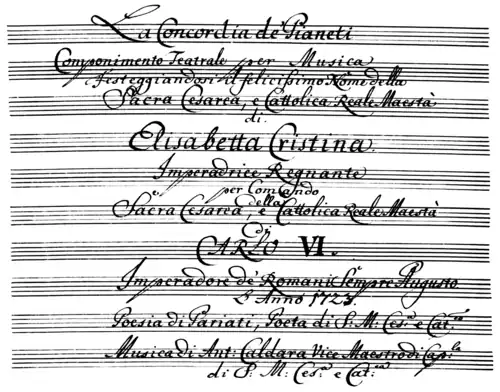 La Concordia de' Pianeti
Componimento Teatrale per Musica
Festeggiandosi il felicissimo Nome della
Sacra Cesarea, e Cattolica Reale Maestà
di
Elisabetta Cristina.
Imperadrice Regnante
per Comando
della
Sacra Cesarea, e Cattolica Reale Maestà
di
CARLO VI.
Imperadore de' Romani Sempre Augusto
L'Anno 1723.
Poesia di Pariati, Poeta di S: M: Ces.a e Cat.ca
Musica di Ant: Caldara Vice Maestro di Cap.la
di S: M: Ces.a e Cat.ca